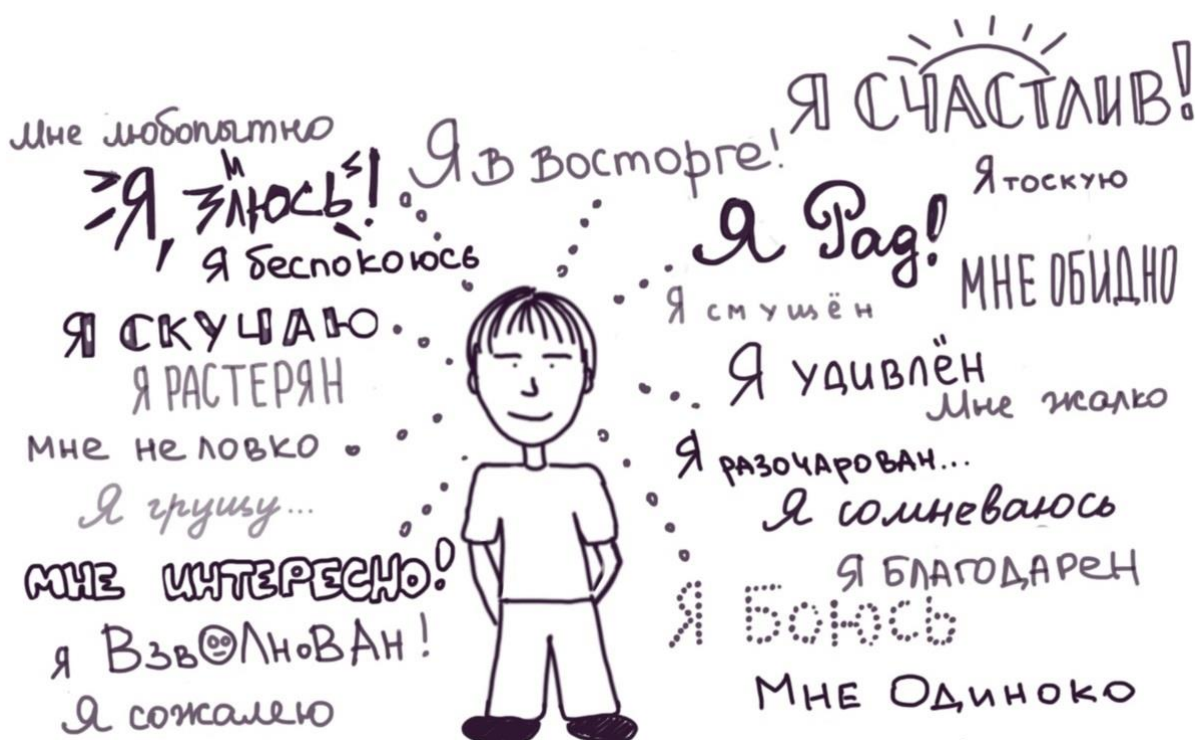 Мне любопытно
Я злюсь!
Я беспокоюсь
Я СКУЧАЮ
Я РАСТЕРЯН
Мне неловко
Я грущу...
МНЕ ИНТЕРЕСНО!
Я ВзвОлНоВАн!
Я сожалею
Я в восторге!
Я СЧАСТЛИВ!
Я тоскую
Я Рад!
МНЕ ОБИДНО
Я смущён
Я удивлён
Мне жалко
Я РАЗОЧАРОВАН...
Я сомневаюсь
Я БЛАГОДАРЕН
Я Боюсь
Мне Одиноко